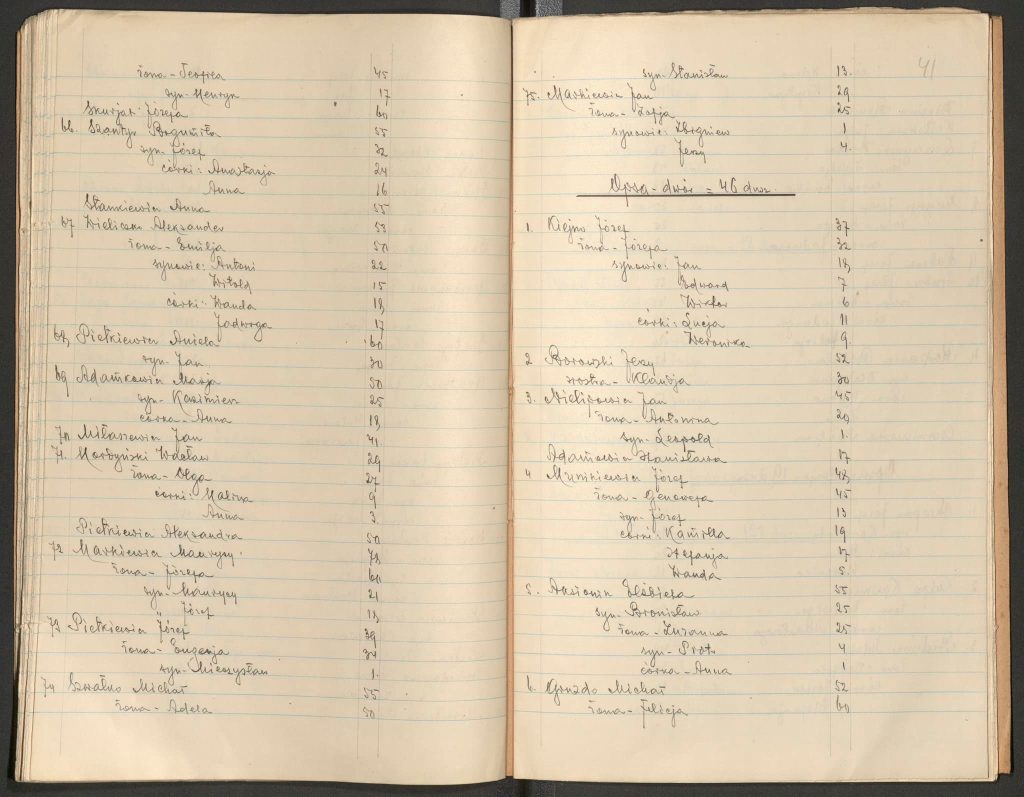 żona - Teofila 45
syn - Henryk 17
Skurjat Józefa 60
66. Szantyr Bogumiła 55
syn - Józef 32
córki: Anastazja 24
Anna 16
Stankiewicz Anna 55
67 Wieliczko Aleksander 53
żona - Emilja 50
synowie: Antoni 22
Witold 15
córki: Wanda 18
Jadwiga 17
68, Pietkiewicz Aniela 60
syn - Jan 30
69 Adamkowicz Marja 50
syn - Kazimierz 25
córka - Anna 18
70 Miłasiewicz Jan 41
71. Wacław 29
żona - Olga 27
córki: Halina 9
Anna 3
Pietkiewicz Aleksandra 50
72 Markiewicz Maurycy 78
żona - Józefa 60
syn - Maurycy 21
" Józef 18
73 Pietkiewicz Józef 39
żona - Eugenja 34
syn - Mieczysław 1
74 Szwałko Michał 55
żona - Adela 50
41
syn - Stanisław 13
75. Markiewicz Jan 29
żona - Zofja 25
synowie: Zbigniew 1
Jerzy 4
Opsa - dwór = 46 dusz.
1. Kiejno Józef 37
żona - Józefa 32
synowie: Jan 18
Edward 7
Wiktor 6
córki: Łucja 11
Weronika 9
2 Borowski Jerzy 52
siostra - Klaudja 30
3. Jan 45
żona - Antonina 20
syn - Leopold 1
Adamowicz Stanisława 17
4 Munikiewicz Józef 48
żona - Genowefa 45
syn - Józef 13
córki: Kamilla 19
Stefanja 17
Wanda 5
5. Aksionin Elżbieta 55
syn - Bronisław 25
żona - Zuzanna 25
syn - Piotr 4
córka - Anna 1
6. Michał 52
żona - Felicja 60